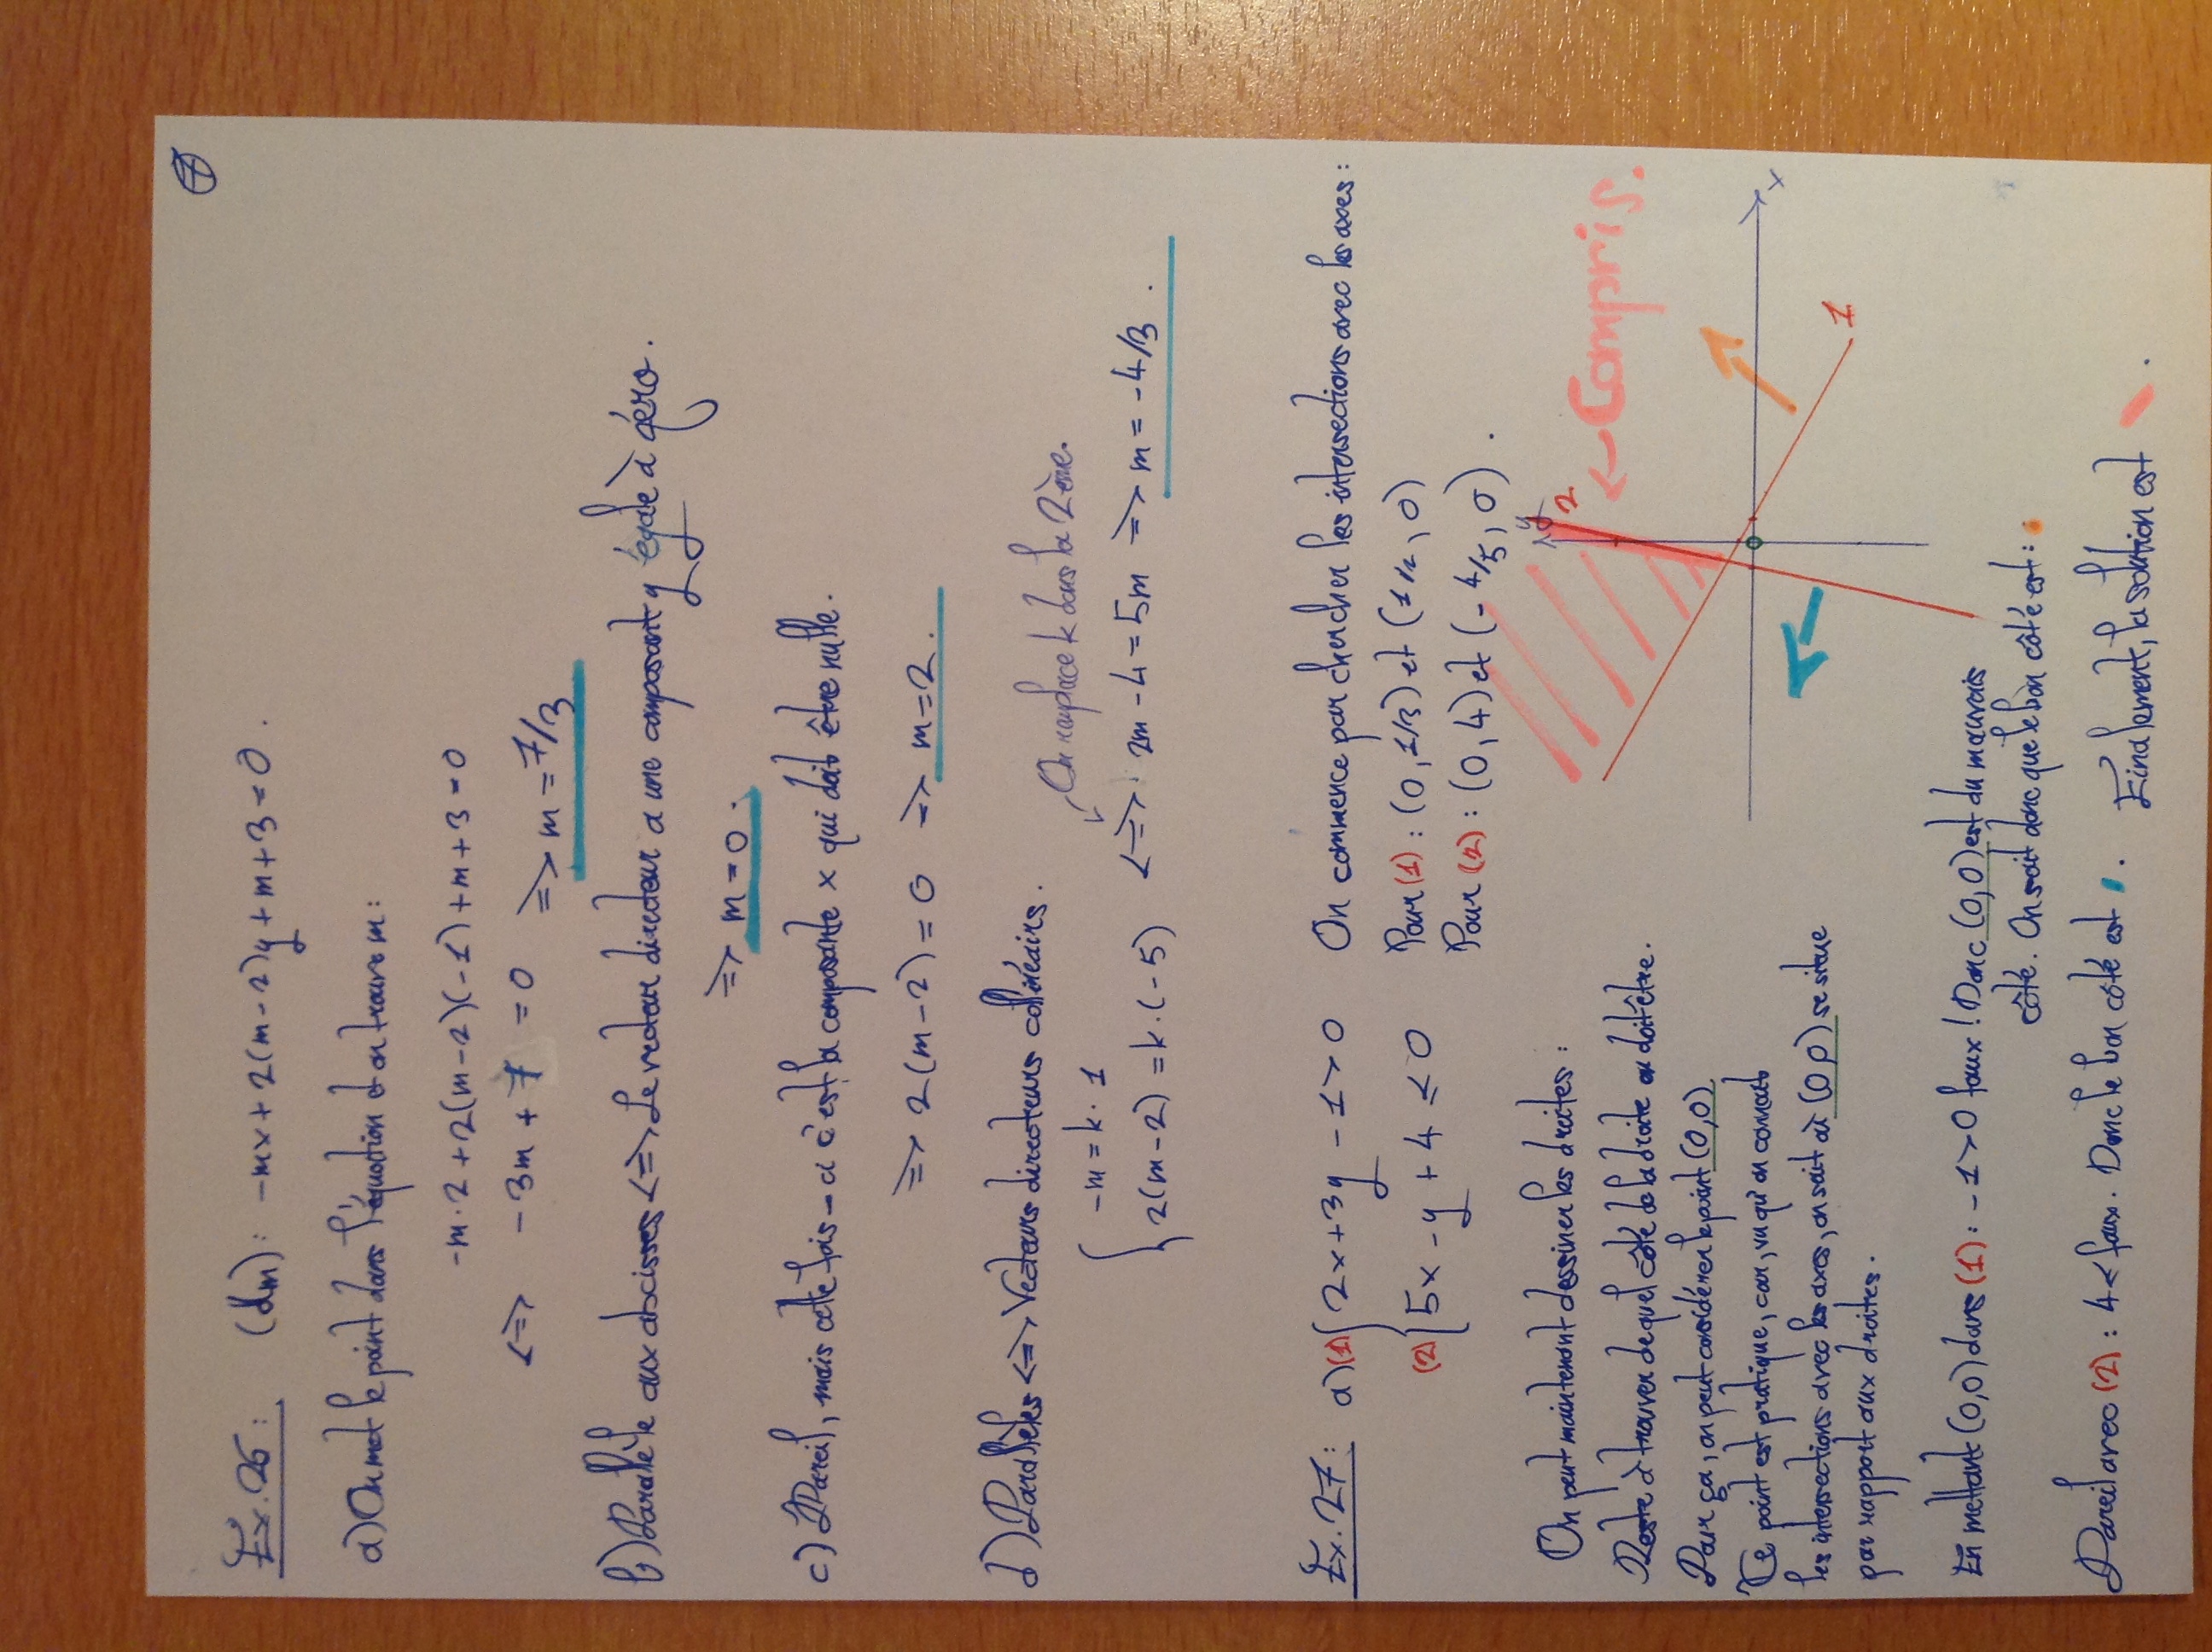 7
Ex. 26 : (dm) : -mx + 2(m-2)y + m + 3 = 0 .
a) On met le point dans l'équation et on trouve m :
-m·2 + 2(m-2)(-1) + m + 3 = 0
<=> -3m + 7 = 0 => m = 7/3
b) Parallèle aux abcisses <=> Le vecteur directeur a une composant y égale à zéro .
=> m = 0 .
c) Pareil, mais cette fois-ci c'est la composante x qui doit être nulle .
=> 2(m-2) = 0 => m = 2 .
d) Parallèles <=> Vecteurs directeurs collinéairs .
On remplace k dans la 2ème.
{ -m = k · 1
2(m-2) = k·(-5) <=> 2m - 4 = 5m => m = -4/3 .
Ex. 27 : a) (1) { 2x + 3y - 1 > 0 On commence par chercher les intersections avec les axes :
Pour (1) : (0, 1/3) et (1/2, 0)
(2) { 5x - y + 4 ≤ 0
Pour (2) : (0, 4) et (-4/5, 0) .
On peut maintenant dessiner les droites :
y
2
← Compris.
Reste à trouver de quel côté de la droite on doit être.
Pour ça, on peut considérer le point (0,0)
Ce point est pratique, car, vu qu'on connait
x
les intersections avec les axes, on sait où (0,0) se situe
1
par rapport aux droites .
En mettant (0,0) dans (1) : -1 > 0 faux ! Donc (0,0) est du mauvais
côté. On sait donc que le bon côté est :
Pareil avec (2) : 4 < faux. Donc le bon côté est .
Finalement, la solution est .